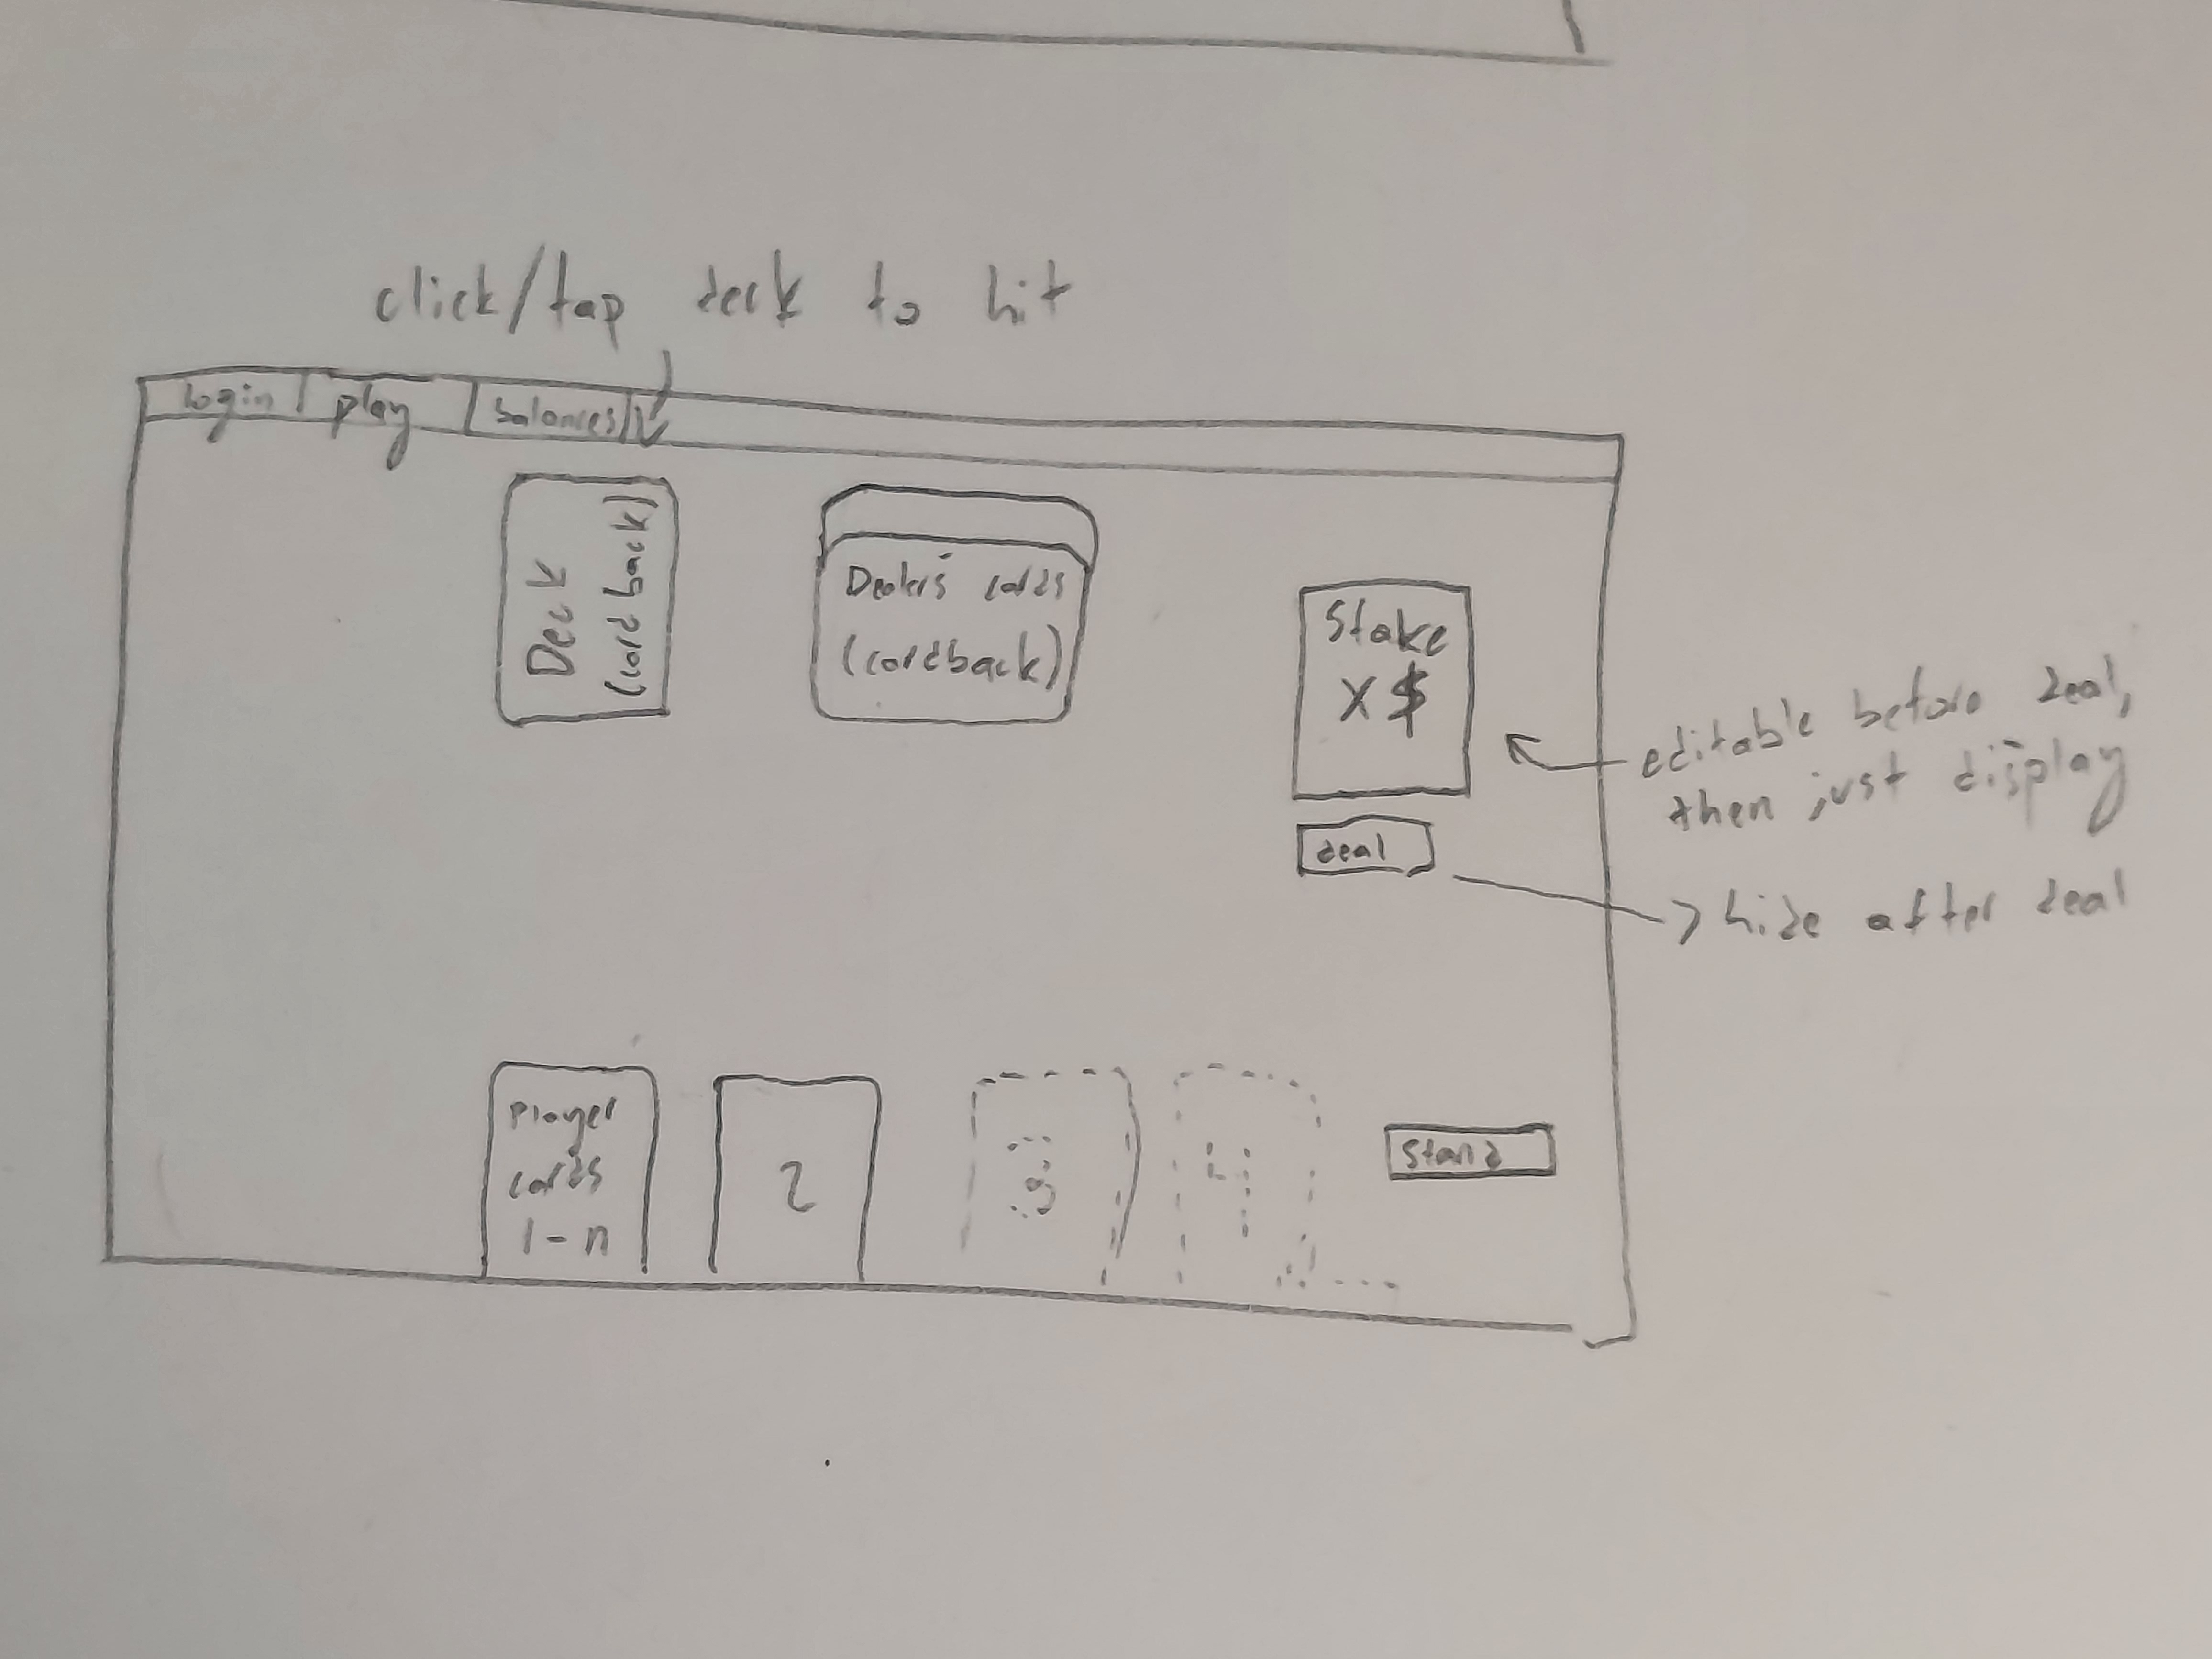 click/tap deck to hit
login play balances
Deck
(cardback)
Dealers cards
(cardback)
Stake
X $
editable before deal,
then just display
deal
hide after deal
Player
cards
1-n
2
3
4
stand